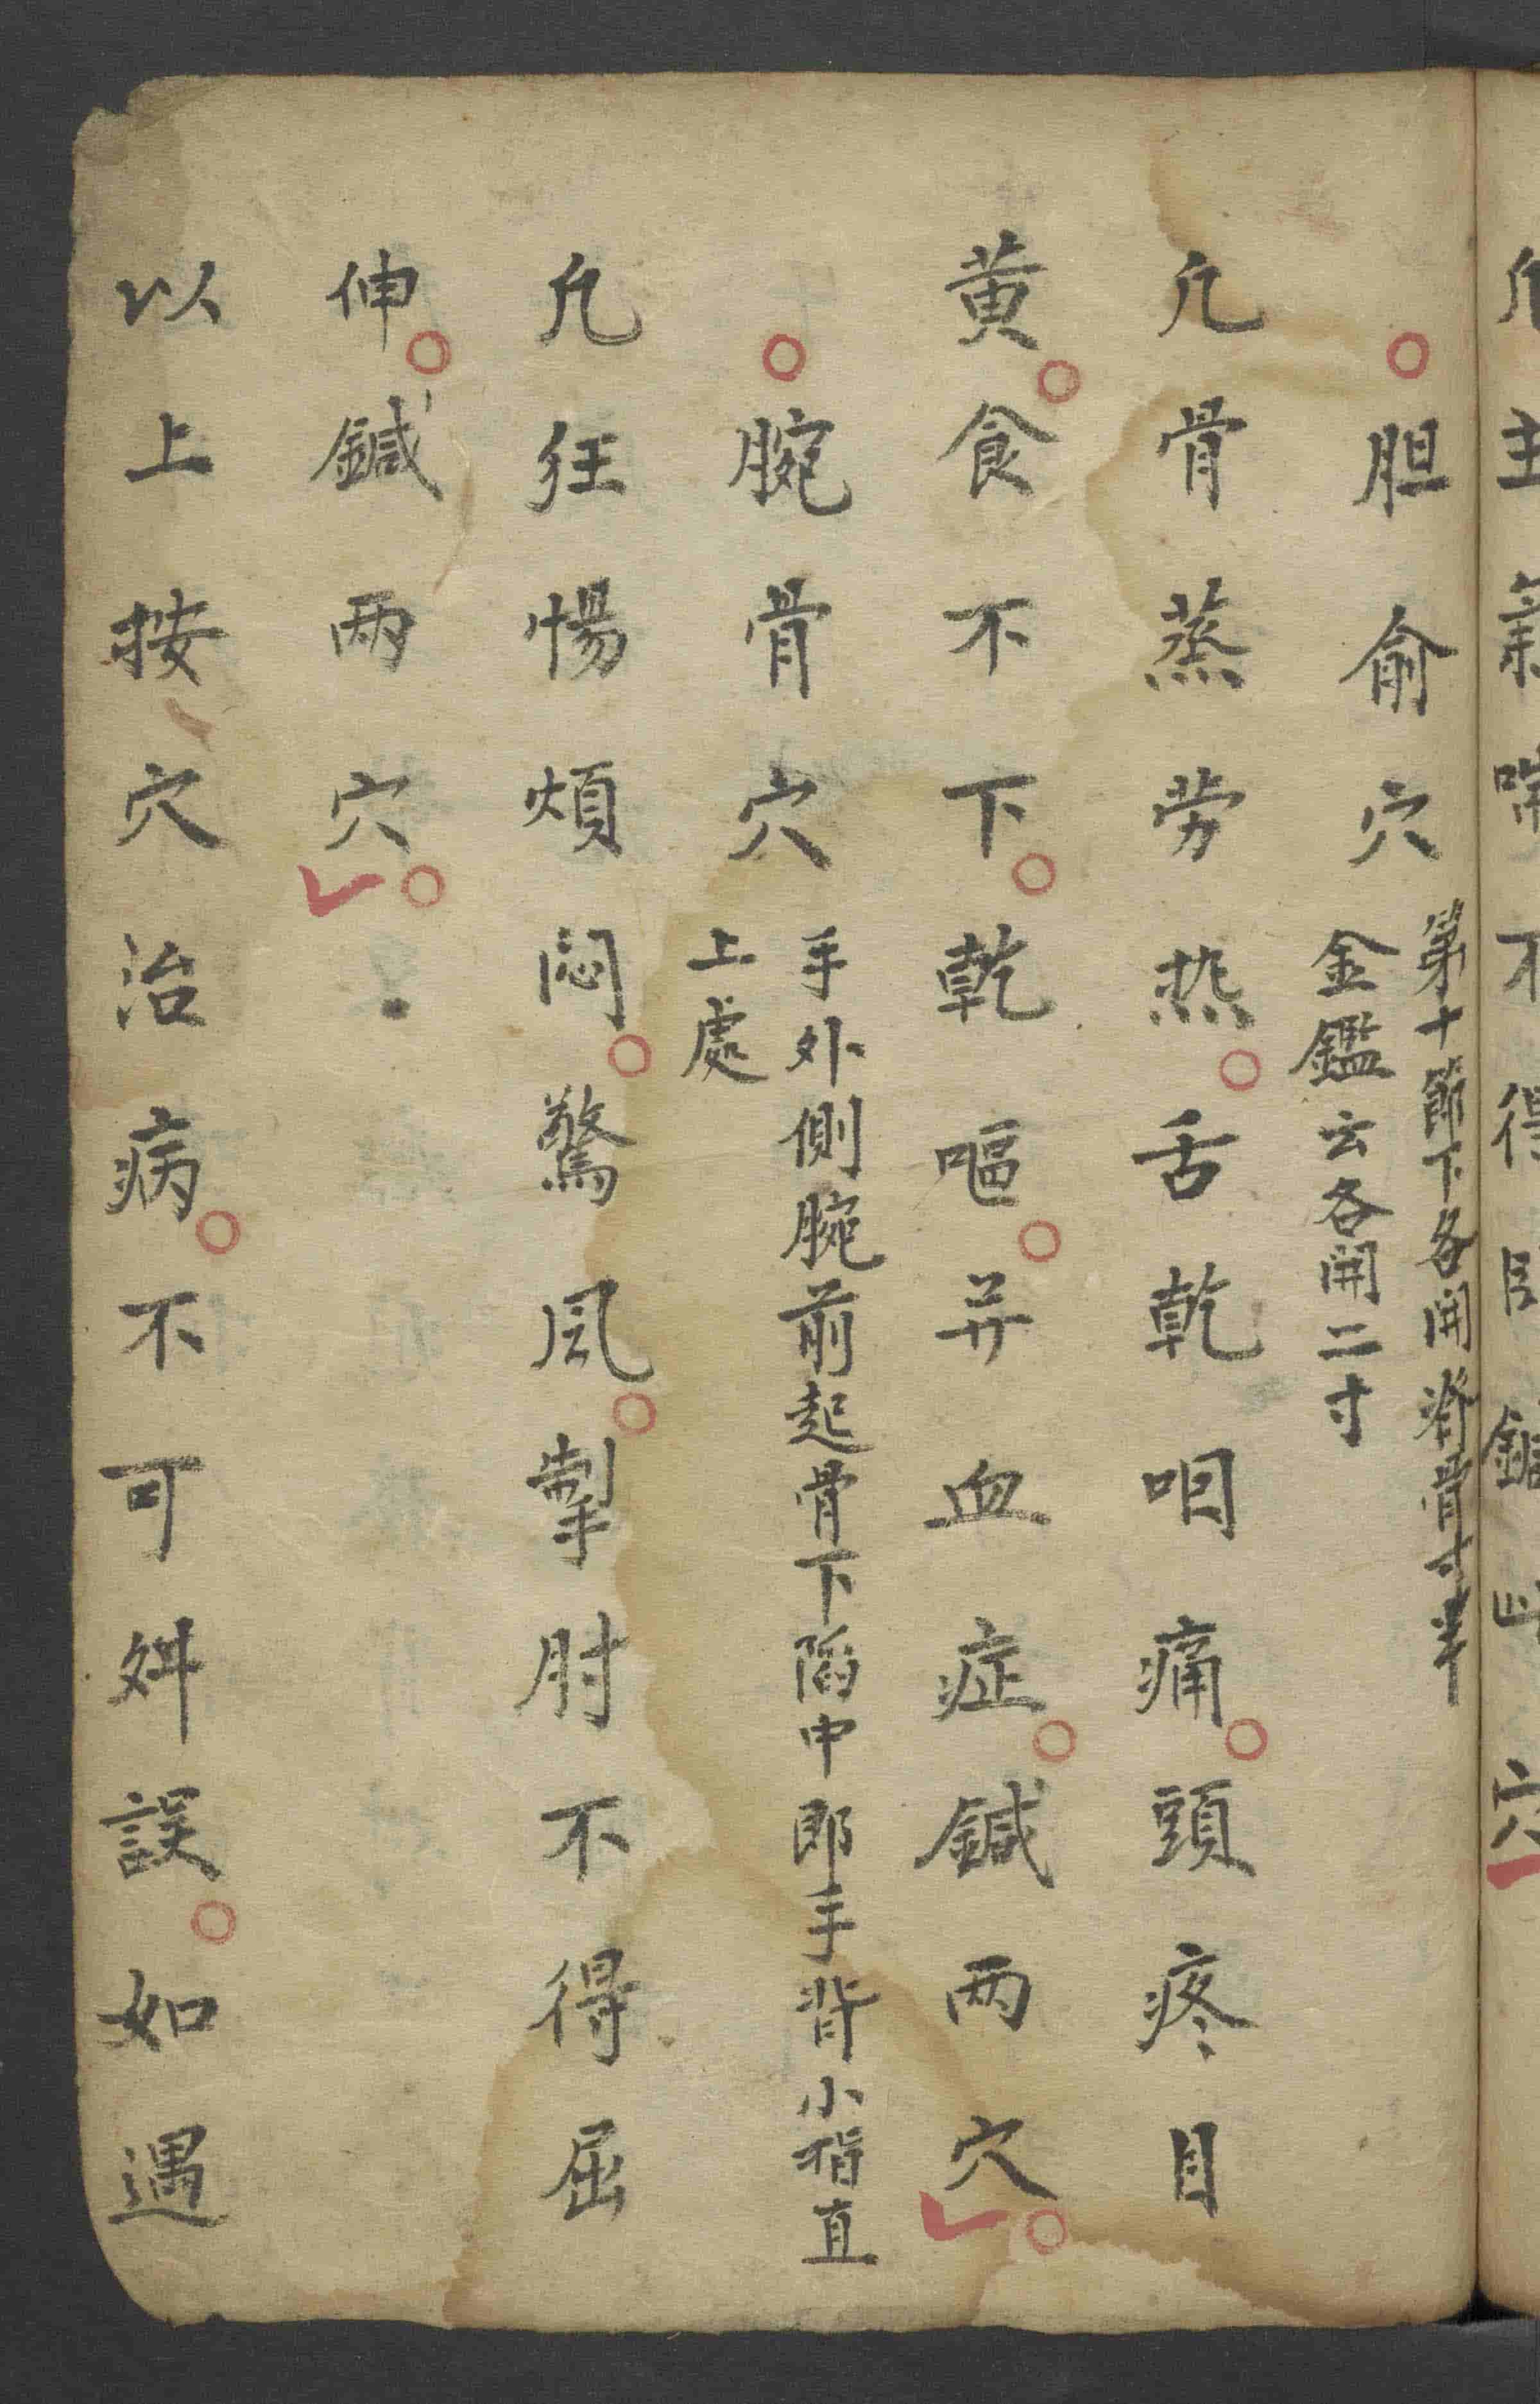 胆俞穴
第十節下各開脊骨寸半
金鑑云各開二寸
凢骨蒸劳热舌乾咽痛頭疼目
黄食不下乾嘔并血症鍼两穴
腕骨穴
手外側腕前起骨下陷中即手背小指直
上處
凢狂惕煩悶驚風掣肘不得屈
伸鍼两穴
以上按穴治病不可舛誤如遇